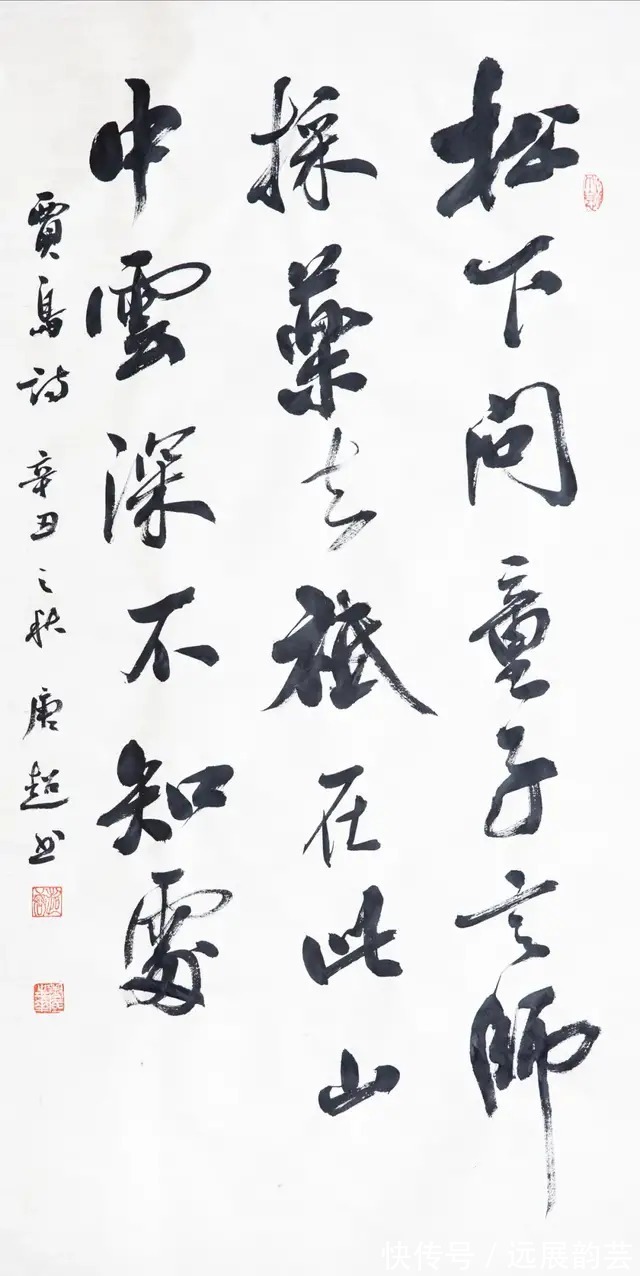 松下问童子言師
採藥去祗在此山
中雲深不知處
賈島詩 辛丑之秋 唐超书
快传号 / 远展韵芸